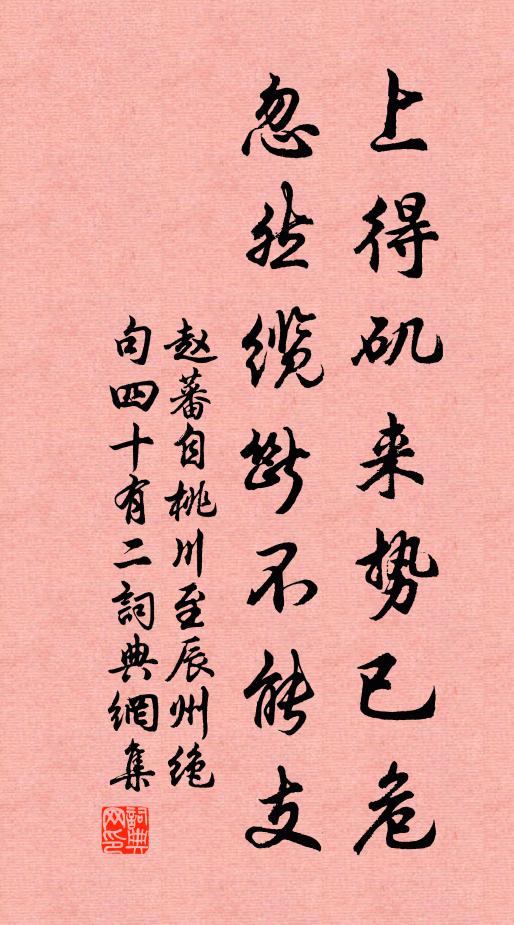 上得矶来势已危
忽然缆断不能支
赵蕃自桃川至辰州绝
句四十有二詞典網集
詞典网印